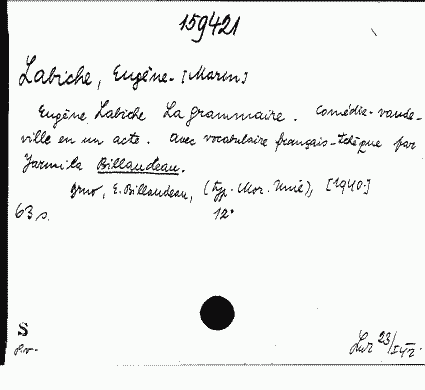 159421
Labiche, Eugène-[Marin]
Eugène Labiche La grammaire. Comédie-vaude-
ville en un acte. Avec vocabulaire français-tchèque par
Jarmila Billaudeau.
Brno, E. Billaudeau, (typ. Mor. Unie), [1940.]
63 s. 12°
S